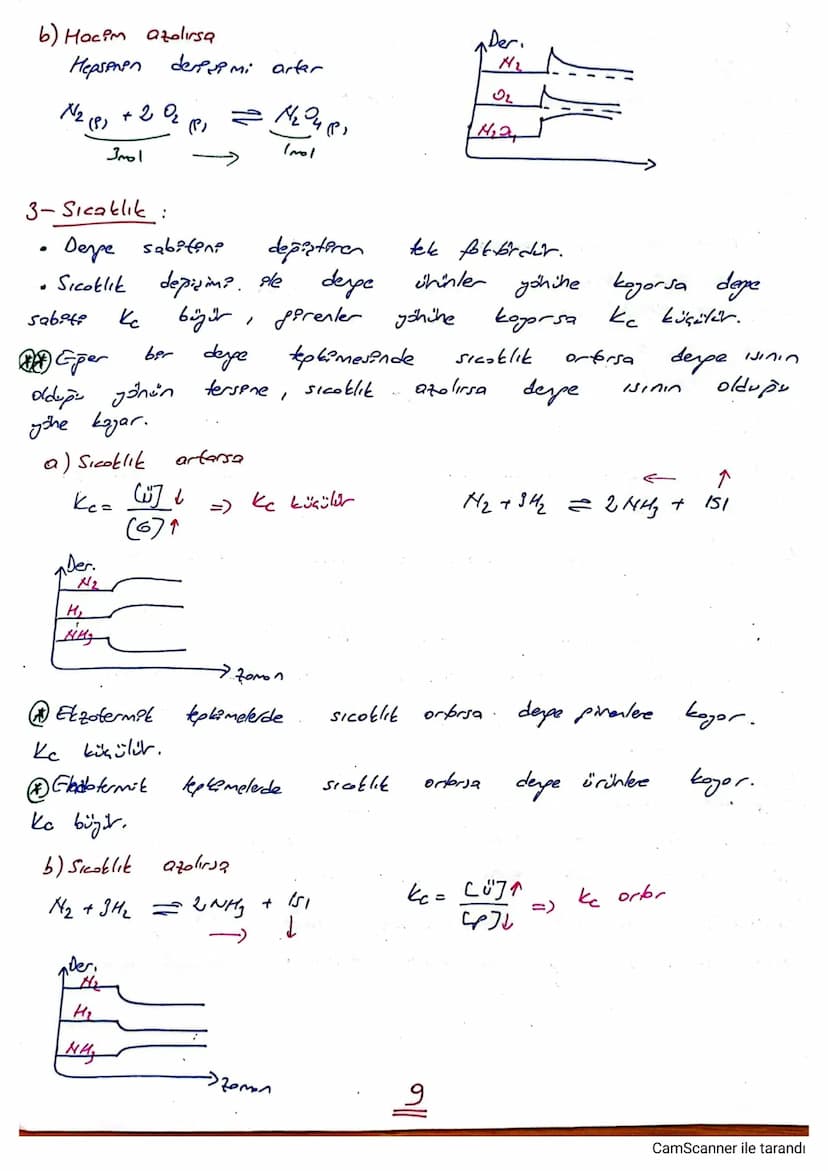 b) Hacim azalırsa
Hepsinin derişimi artar
N₂(g) + 2 O₂(g) ⇌ N₂O₄(g)
3mol → 1mol
Der.
N₂
O₂
N₂O₄
3- Sıcaklık :
• Denge sabitini değiştiren tek faktördür.
• Sıcaklık değişimi ile denge ürünler yönüne kayarsa denge
sabiti Kc büyür, girenler yönüne kayarsa Kc küçülür.
** Eğer bir denge tepkimesinde sıcaklık artarsa denge ısının
olduğu yönün tersine, sıcaklık azalırsa denge ısının olduğu
yöne kayar.
a) Sıcaklık artarsa
Kc = [Ü]↓ / [G]↑ => Kc küçülür
← ↑
N₂ + 3H₂ ⇌ 2NH₃ + ISI
Der.
N₂
H₂
NH₃
Zaman
* Ekzotermik tepkimelerde sıcaklık artarsa denge girenlere kayar.
Kc küçülür.
* Endotermik tepkimelerde sıcaklık artarsa denge ürünlere kayar.
Kc büyür.
b) Sıcaklık azalırsa
N₂ + 3H₂ ⇌ 2NH₃ + ISI
→ ↓
Kc = [Ü]↑ / [G]↓ => Kc artar
Der.
N₂
H₂
NH₃
Zaman
9
CamScanner ile tarandı